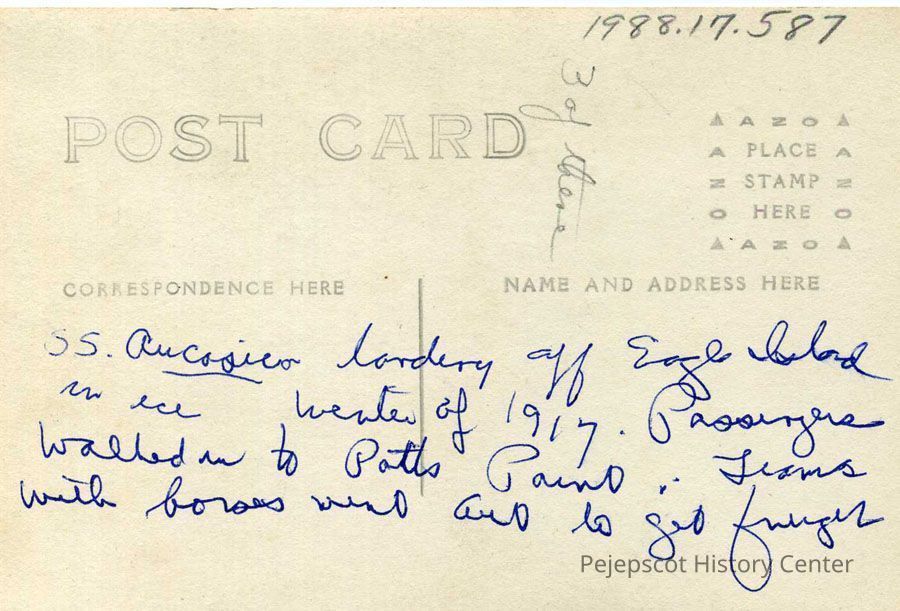 1988.17.587
3 of these
POST CARD
AZO
PLACE
STAMP
HERE
AZO
CORRESPONDENCE HERE
NAME AND ADDRESS HERE
SS. Aucocisco landing off Eagle Island
in ice winter of 1917. Passengers
walked in to Potts Point. Teams
with horses went out to get freight
Pejepscot History Center